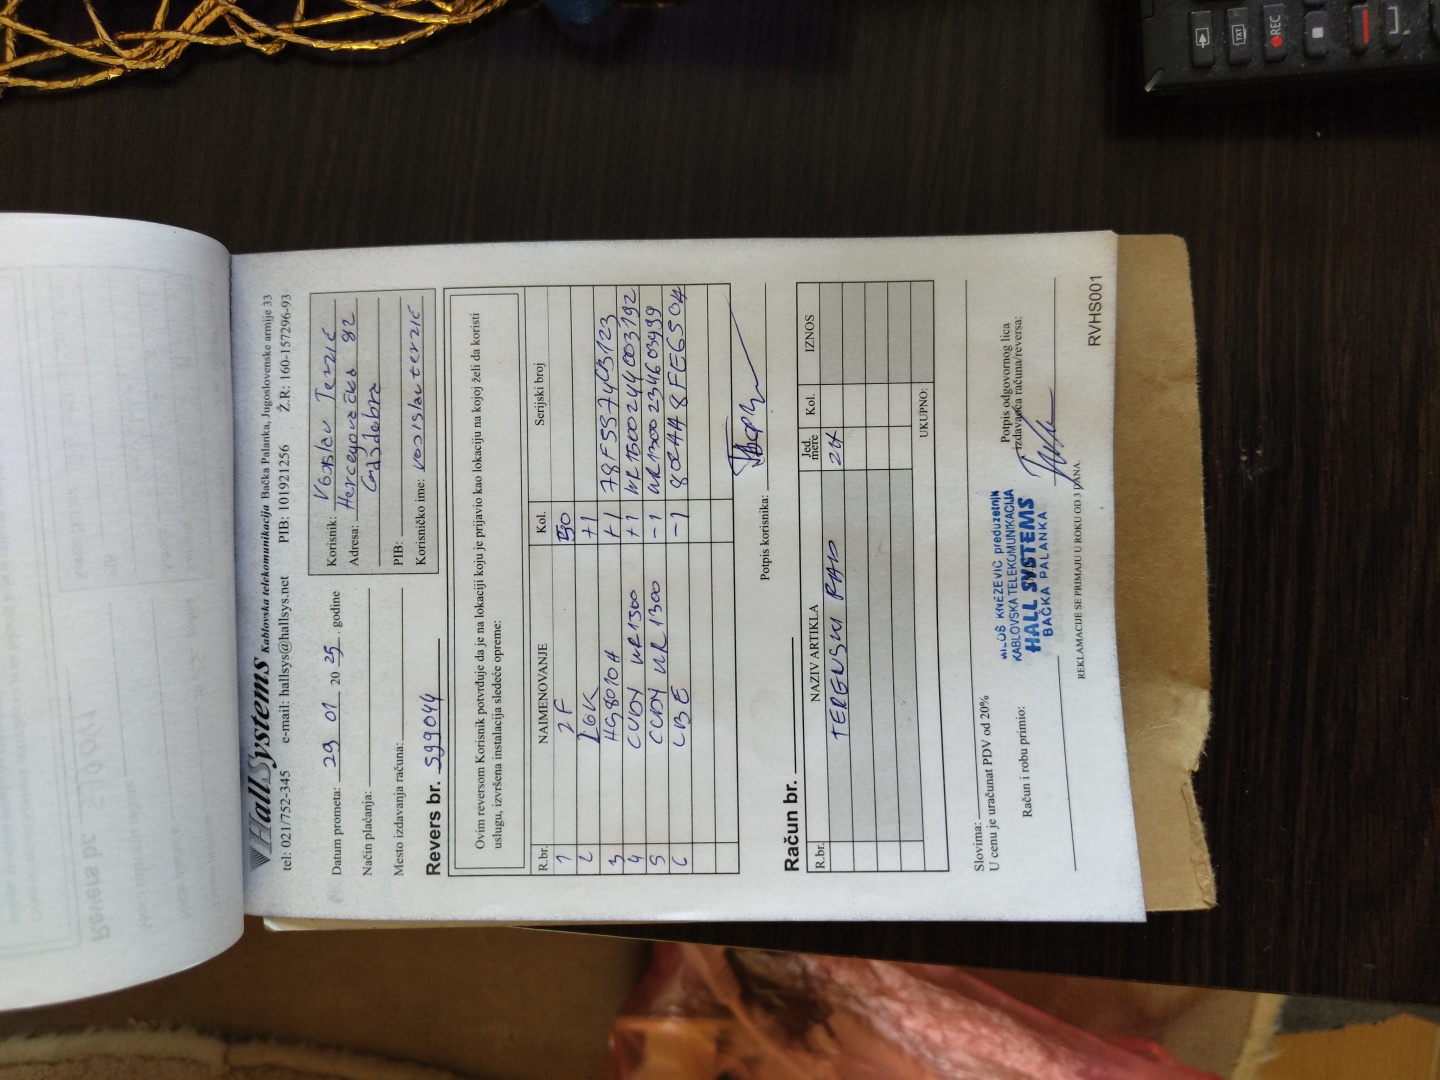 HallSystems Kablovska telekomunikacija Bačka Palanka, Jugoslovenske armije 33
tel: 021/752-345 e-mail: hallsys@hallsys.net PIB: 101921256 Ž.R: 160-157296-93
Datum prometa: 29 01 2025. godine
Način plaćanja:
Mesto izdavanja računa:
Korisnik: Vojislav Terzić
Adresa: Hercegovačka 82
PIB:
Korisničko ime: vojislavterzic
Revers br. 599044
Ovim reversom Korisnik potvrđuje da je na lokaciji koju je prijavio kao lokaciju na kojoj želi da koristi
uslugu, izvršena instalacija sledeće opreme:
R.br. NAIMENOVANJE Kol. Serijski broj
1 2F
2 +1
3 HG8010H +1
4 CUDY WR1300 +1 WR1300244003192
5 CUDY WR1300 -1 WR1300234603999
6 LBE -1
Potpis korisnika:
Račun br.
R.br. NAZIV ARTIKLA Jed. mere Kol. IZNOS
TERENSKI RAD 2H
UKUPNO:
Slovima:
U cenu je uračunat PDV od 20%
Račun i robu primio:
Potpis odgovornog lica
izdavaoca računa/reversa:
MILOŠ KNEŽEVIĆ preduzetnik
KABLOVSKA TELEKOMUNIKACIJA
HALL SYSTEMS
BAČKA PALANKA
REKLAMACIJE SE PRIMAJU U ROKU OD 3 DANA.
RVHS001
REC
TXT